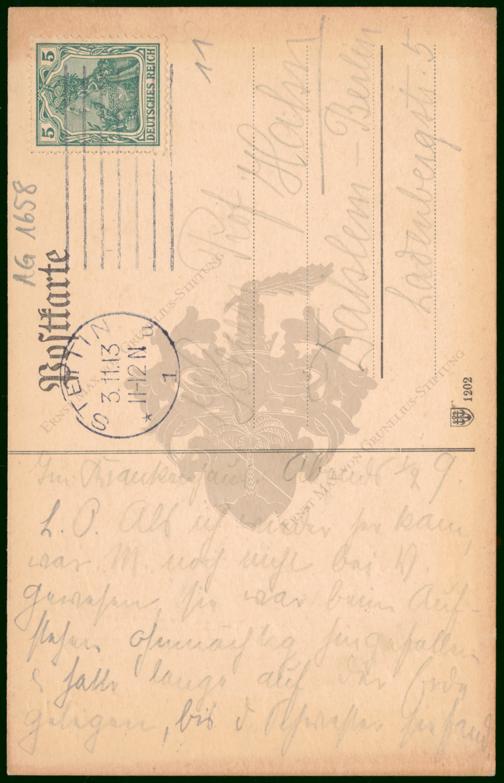 11
5 5
DEUTSCHES REICH
AG 1658
Postkarte
STETTIN
3.11.13
* 11-12 N a
1
Prof Hahn
Dahlem - Berlin
Ladenbergstr. 5
1202
ERNST MAX VON GRUNELIUS-STIFTUNG
ERNST MAX VON GRUNELIUS-STIFTUNG
Im Krankenhaus Abends ½ 9.
L. O. Als ich wieder her kam,
war M. noch nicht bei V.
gewesen, sie war beim Auf-
stehen ohnmächtig hingefallen
& hatte lange auf der Erde
gelegen, bis d. Schwester sie fand